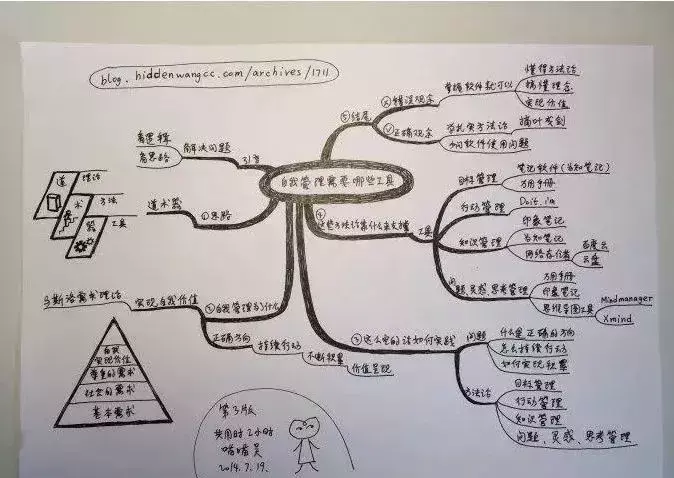 blog.hiddenwangcc.com/archives/1711
自我管理需要哪些工具
引言
解决问题
看逻辑
看思路
①思路
道术器
道 理论
术 方法
器 工具
②自我管理为什么
实现自我价值
马斯洛需求理论
自我
实现价值
尊重的需求
社会的需求
基本需求
正确方向
持续行动
不断积累
价值呈现
③这么空的话如何实践
问题
什么是正确的方向
怎么持续行动
如何实现积累
方法论
目标管理
行动管理
知识管理
问题、灵感、思考管理
④这些方法论靠什么来支撑
工具
目标管理
笔记软件(为知笔记)
万用手册
行动管理
Doit.im
知识管理
印象笔记
为知笔记
网络存储
百度云
云盘
问题、灵感、思考管理
万用手册
印象笔记
思维导图工具
Mindmanager
Xmind
⑤结尾
错误观念
掌握软件就可以
懂得方法论
搞懂理念
实现价值
正确观念
掌扎实方法论
摘叶成剑
和何软件使用问题
第3版
共用时2小时
2014.7.19.